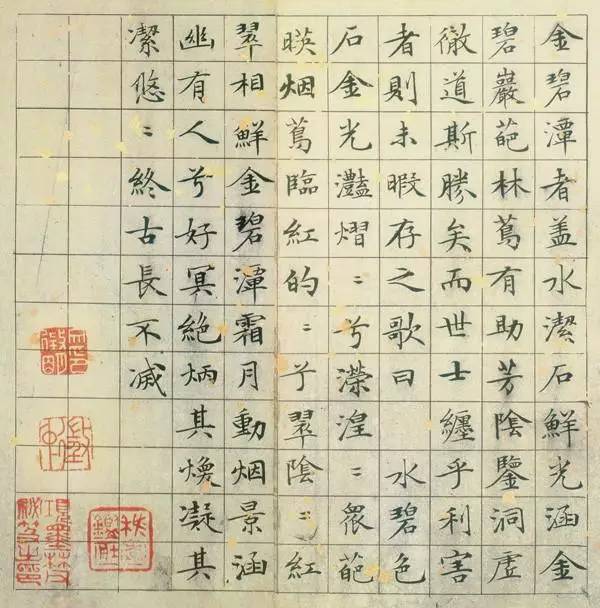 金碧潭者盖水潔石鮮光涵金
碧巖葩林蔦有助芳陰鑒洞虛
徹道斯勝矣而世士纏乎利害
者則未暇存之歌曰 水碧色
石金光灩熠〻兮濚湟〻眾葩
暎烟蔦臨紅的〻兮翠陰〻紅
翠相鮮金碧潭霜月動烟景涵
幽有人兮好冥絕炳其煥凝其
潔悠〻終古長不滅
項墨林父秘笈之印